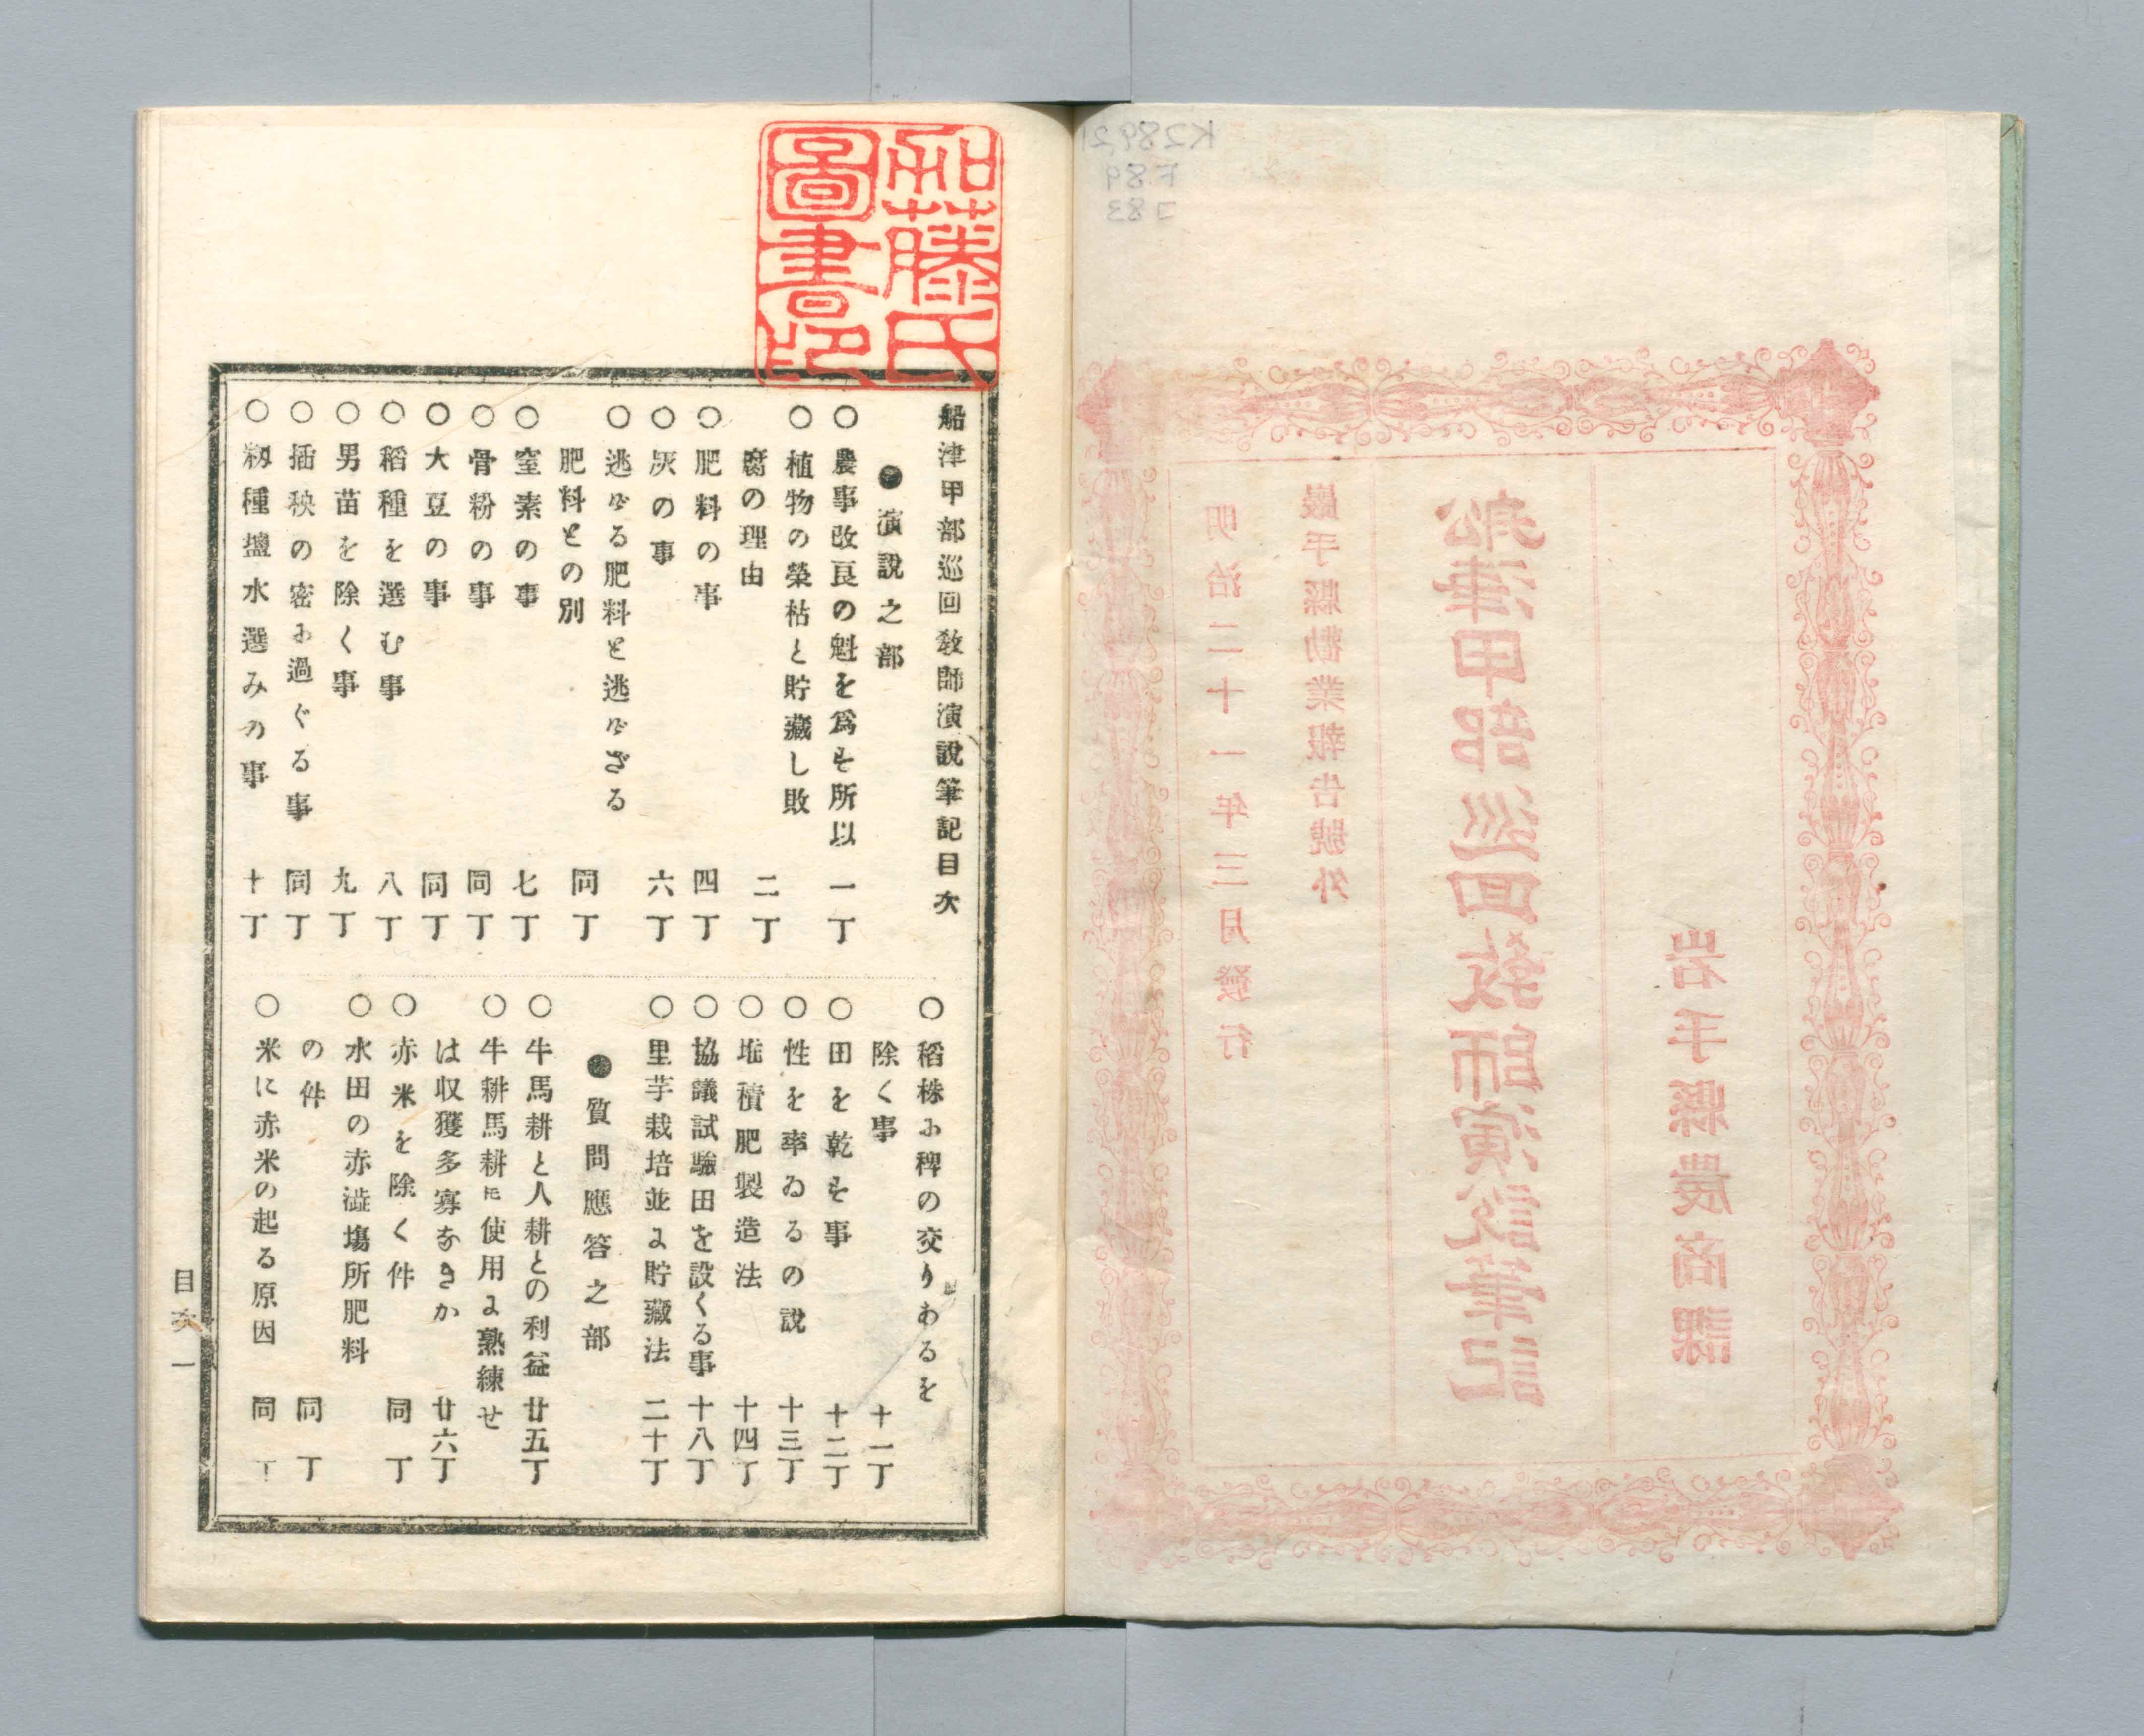 岩手縣農商課
船津甲部巡回敎師演說筆記
巖手縣勸業報告號外
明治二十一年三月發行
K289.21
F89
コ83
和藤氏
圖書印
船津甲部巡回敎師演說筆記目次
●演說之部
○農事改良の魁を爲を所以 一丁
○植物の榮枯と貯藏し敗
腐の理由 二丁
○肥料の事 四丁
○灰の事 六丁
○逃げる肥料と逃げざる
肥料との別 同丁
○窒素の事 七丁
○骨粉の事 同丁
○大豆の事 同丁
○稻種を選む事 八丁
○男苗を除く事 九丁
○揷秧の密に過ぐる事 同丁
○籾種鹽水選みの事 十丁
○稻株に稗の交りあるを
除く事 十一丁
○田を乾す事 十二丁
○性を率ゐるの說 十三丁
○堆積肥製造法 十四丁
○協議試驗田を設くる事 十八丁
○里芋栽培並に貯藏法 二十丁
●質問應答之部
○牛馬耕と人耕との利益 廿五丁
○牛耕馬耕に使用に熟練せ
は収獲多寡なきか 廿六丁
○赤米を除く件 同丁
○水田の赤澁塲所肥料
の件 同丁
○米に赤米の起る原因 同丁
目次 一